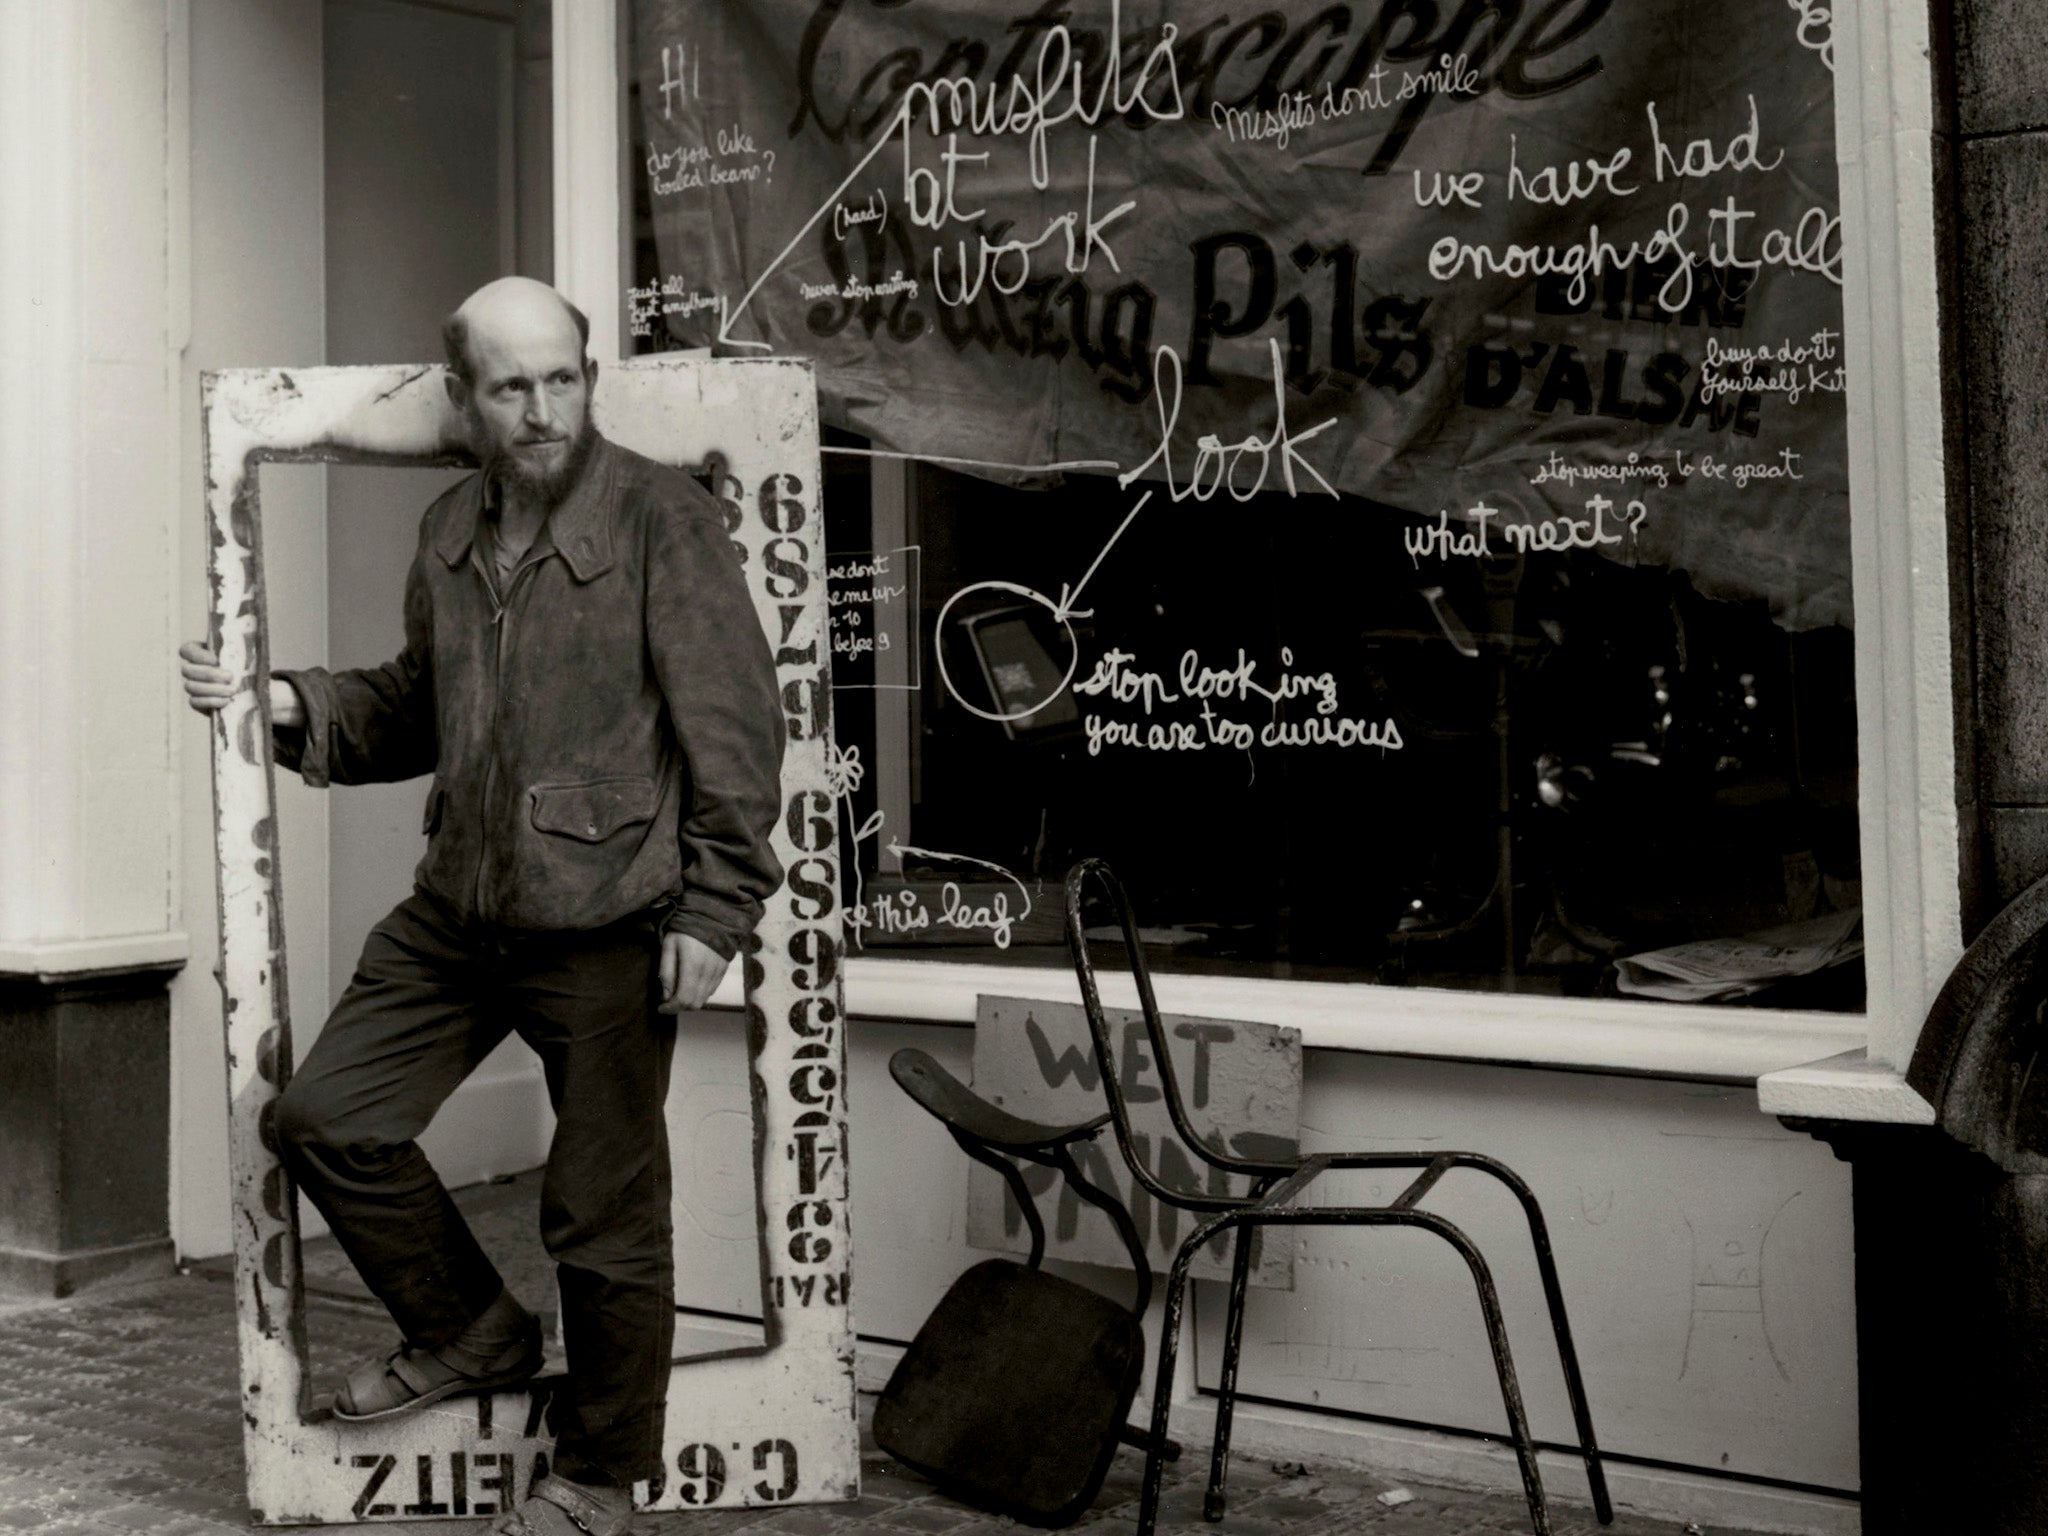 Contrescarpe
HI
misfits
at
work
misfits dont smile
do you like
boiled beans?
(hard)
we have had
enough of it all
just all
just anything
die
never stop writing
Mutzig Pils
BIERE
D'ALSACE
buy a do it
yourself kit
look
stop weeping to be great
what next?
we dont
me up
10
before 9
stop looking
you are too curious
this leaf
WET
PAINT